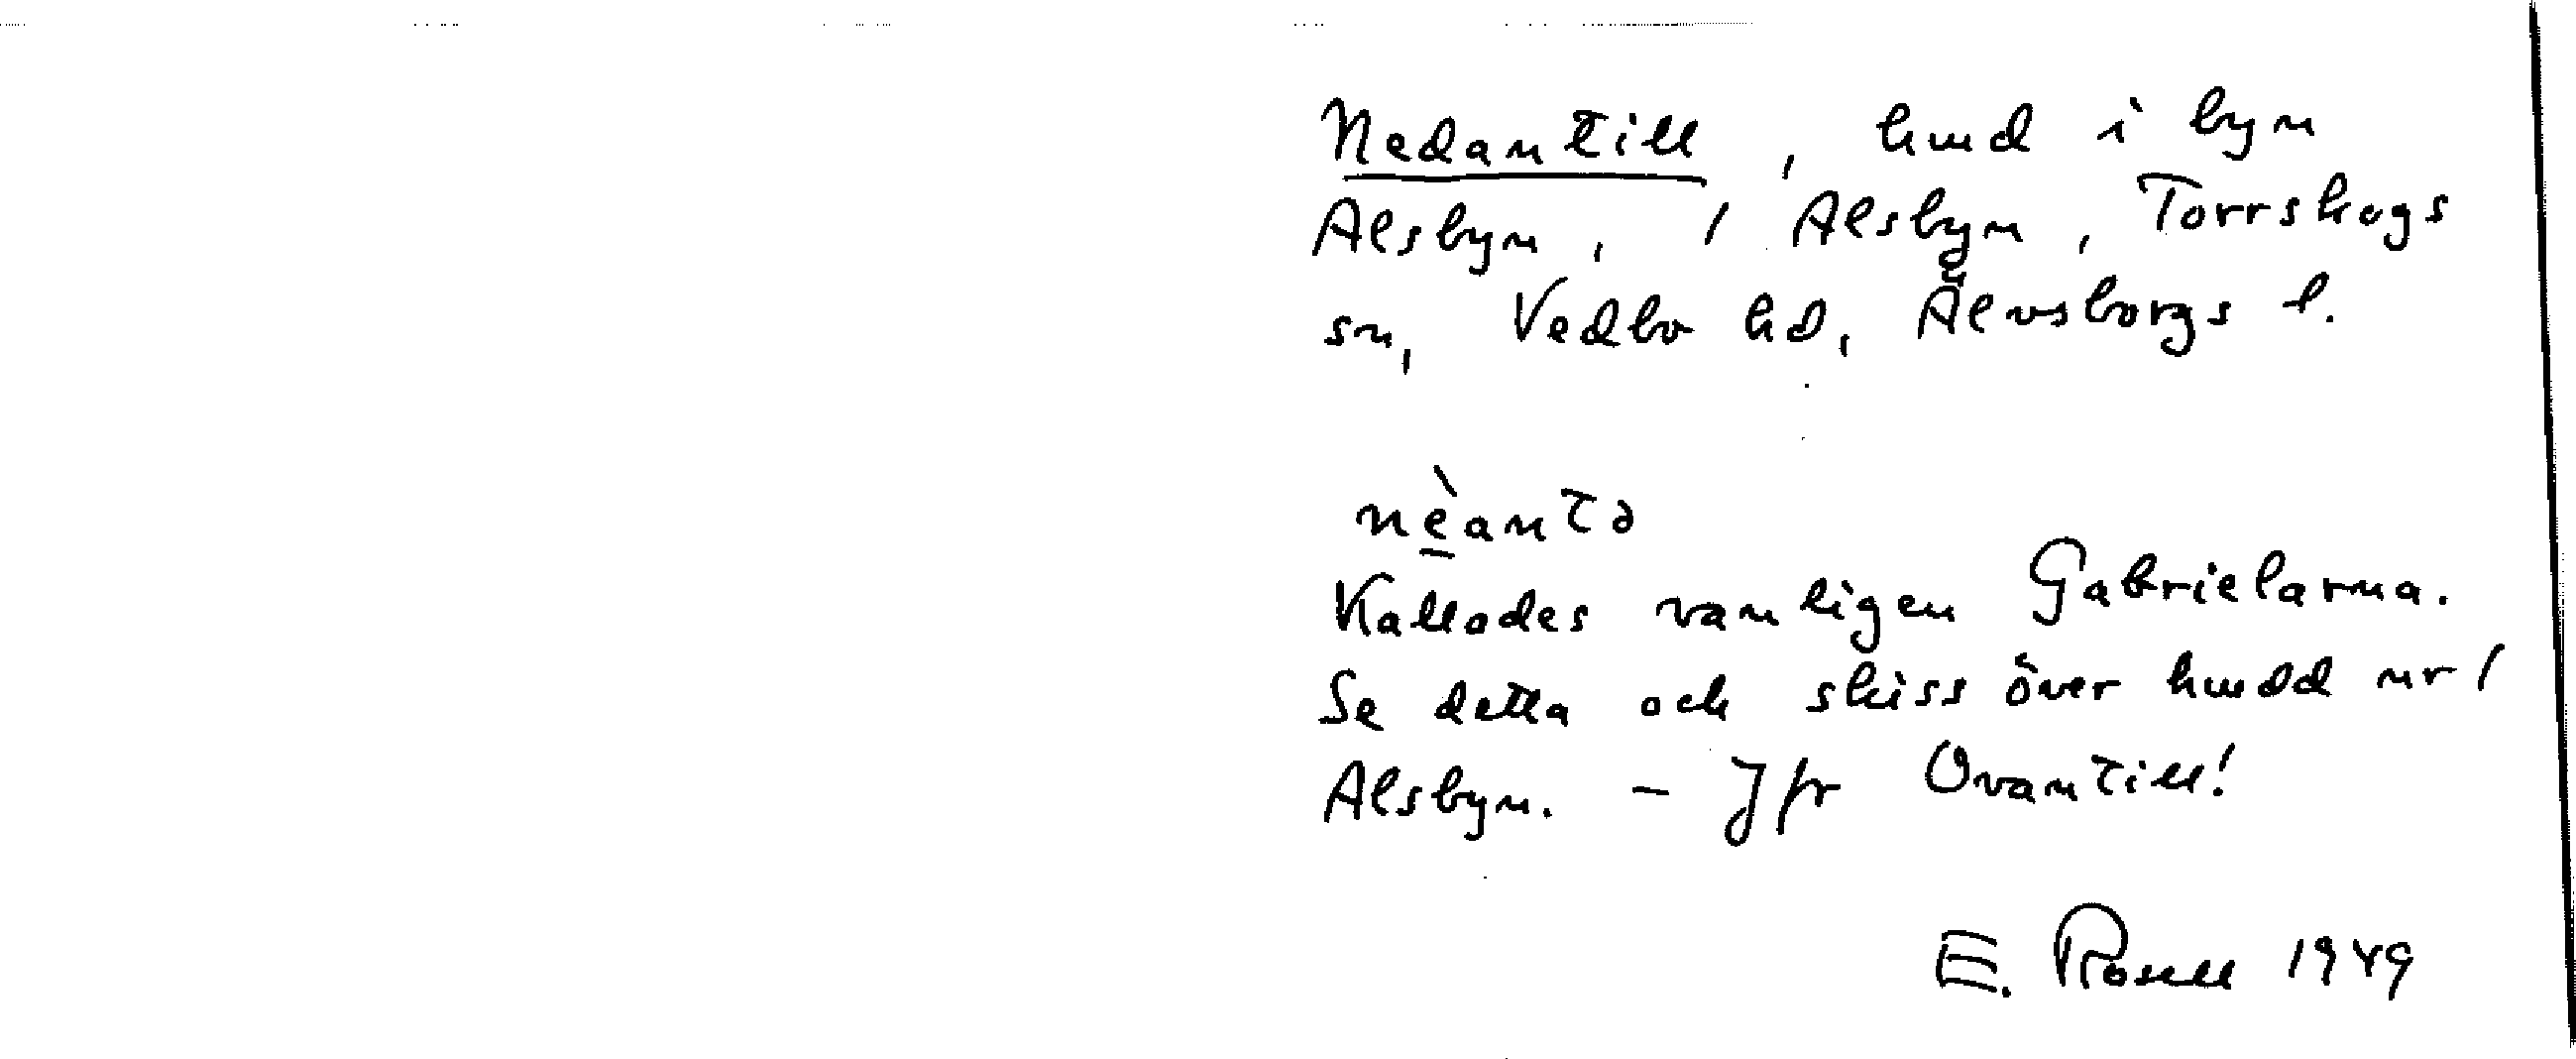 Nedantill, hmd i byn
Alsbyn, 1 Alsbyn, Torrskogs
sn, Vedbo hd, Älvsborgs l.
nèantə
Kallades vanligen Gabrielarna.
Se detta och skiss över hmdd nr 1
Alsbyn. - Jfr Ovantill!
E. Rosell 1949